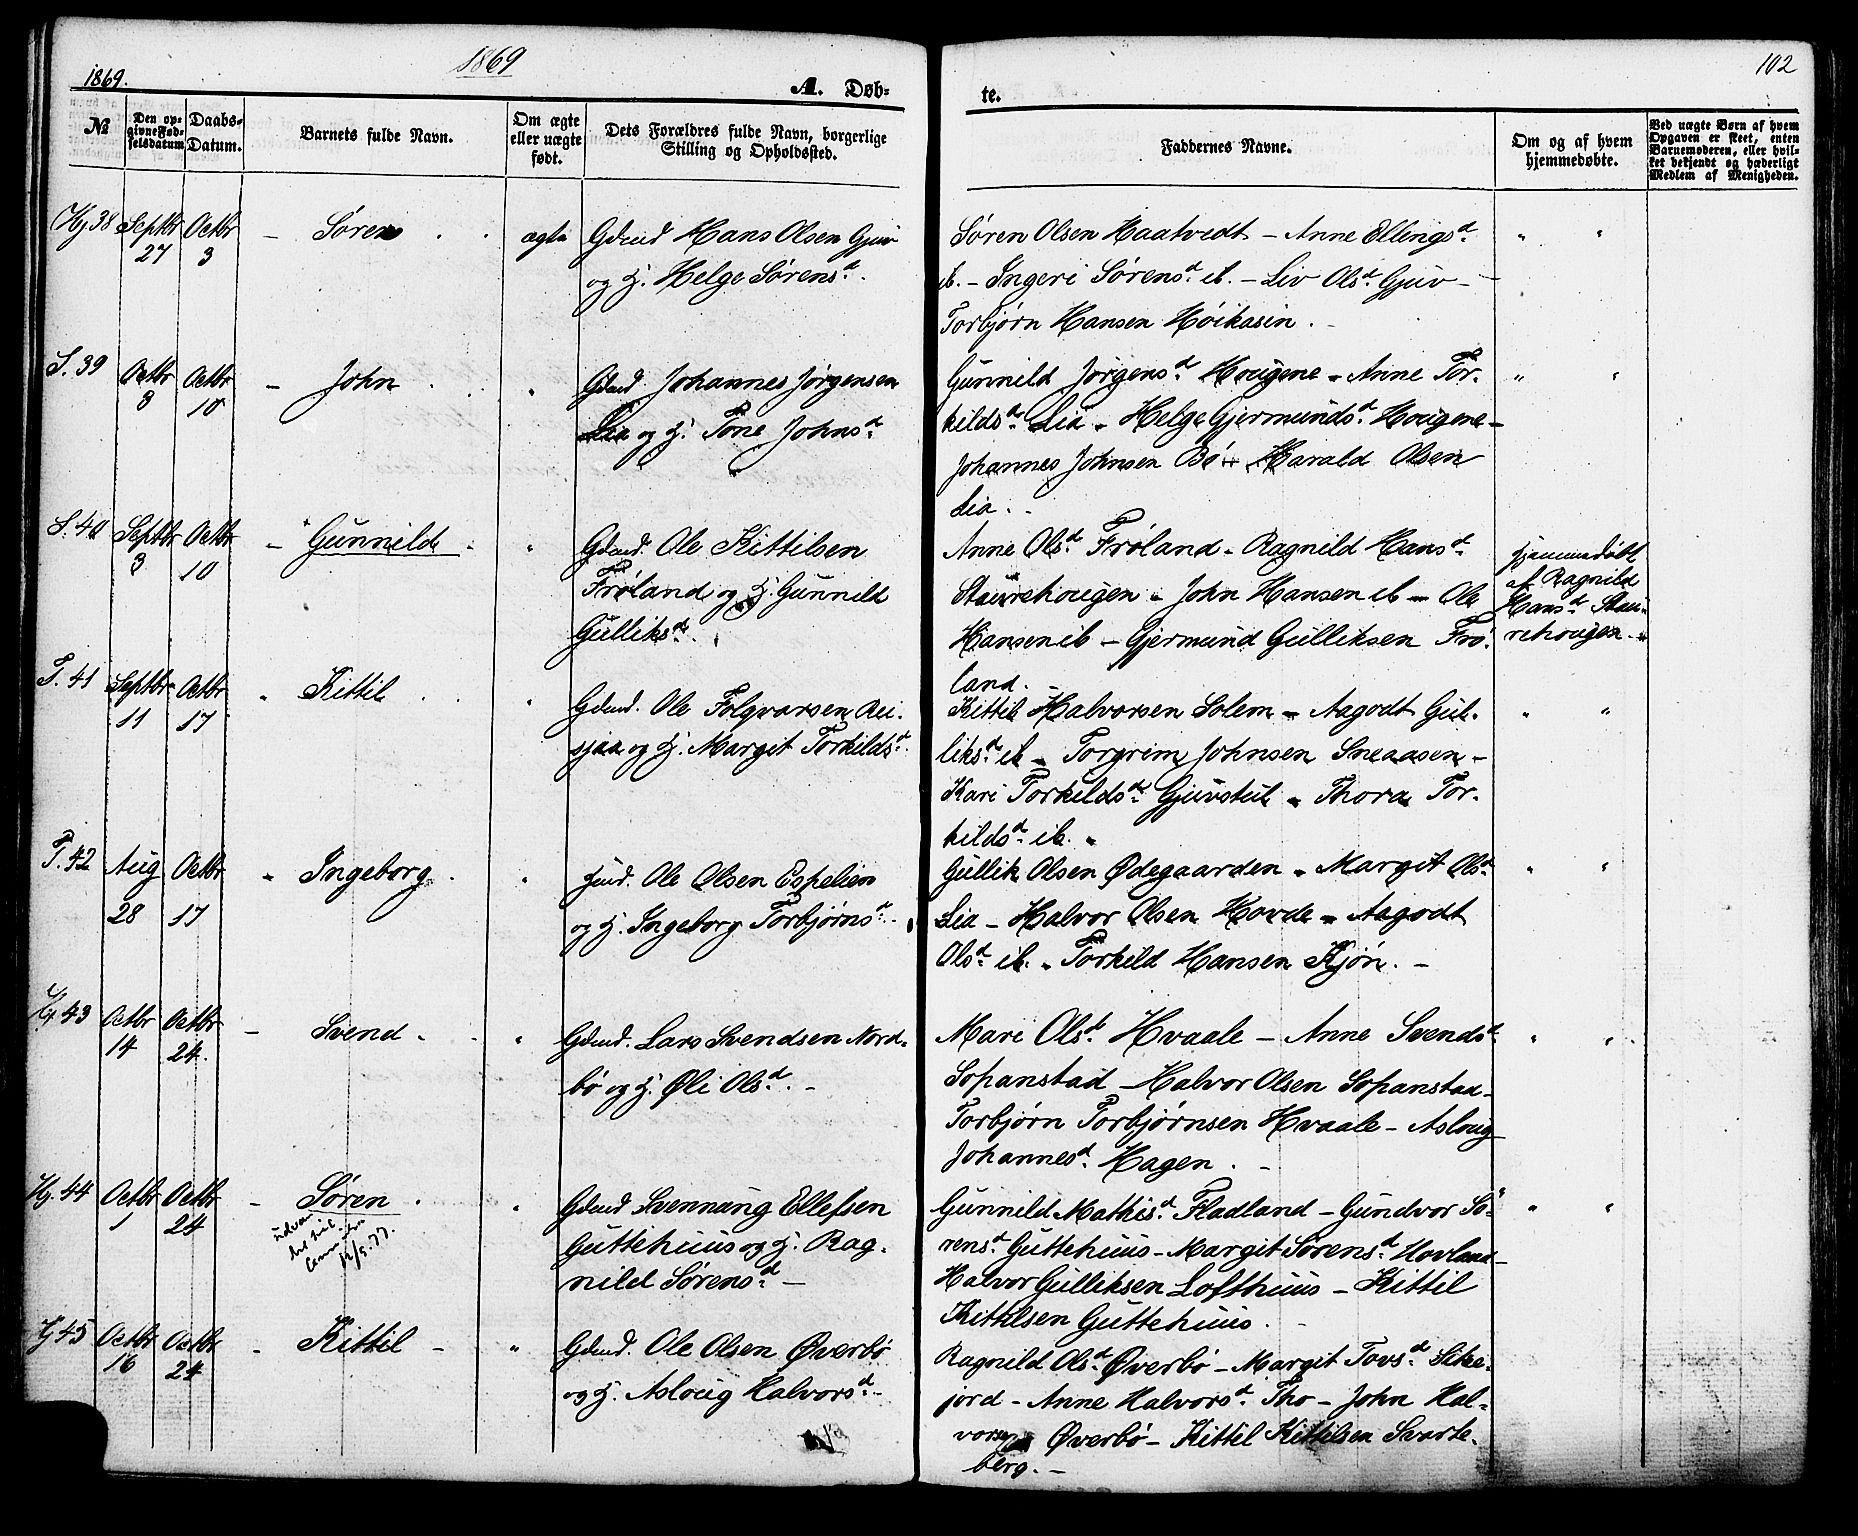 1869.
1869
A. Døb-
te.
102
№
Den op-
givne Fød-
selsdatum
Daabs-
Datum.
Barnets fulde Navn.
Om ægte
eller uægte
født.
Dets Forældres fulde Navn, borgerlige
Stilling og Opholdssted.
Faddernes Navne.
Om og af hvem
hjemmedøbte.
Ved uægte Børn af hvem
Opgaven er skeet, enten
Barnemoderen, eller hvil-
ket bekjendt og hæderligt
Medlem af Menigheden.
Hj 38 Septbr 27 Octbr 3 – Søren ægte
Gdmd Hans Olsen Gjuv
og H. Helge Sørensd.
Søren Olsen Haatvedt – Anne Ellingsd.
ib. – Ingeri Sørensd. ib. – Liv Olsd. Gjuv –
Torbjørn Hansen Høikasin. –
S. 39 Octbr 3 Octbr 10 – John "
Gdmd. Johannes Jørgensen
Lia og H. Tone Johnsd.
Gunnild Jørgensd. Hougene – Anne Tor-
kildsd. Lia – Helge Gjermundsd. Hougene –
Johannes Johnsen Bø – Harald Olsen
Lia. –
S. 40 Septbr 3 Octbr 10 – Gunnild "
Gdmd. Ole Kittilsen
Frøland og H. Gunnild
Gulliksd.
Anne Olsd. Frøland – Ragnild Hansd.
Staurehougen – John Hansen ib – Ole
Hansen ib – Gjermund Gulliksen Frø-
land. –
hjemmedøbt
af Ragnild
Hansd. Stau-
rehougen –
T. 41 Septbr 11 Octbr 17 " Kittil "
Gdmd. Ole Folqvarsen Rei-
sjaa og H. Margit Torkildsd.
Kittil Halvorsen Solem – Aagodt Gul-
liksd. ib – Torgrim Johnsen Sneaasen –
Kari Torkildsd. Gjuvstul – Thora Tor-
kildsd. ib. –
T. 42 Aug 28 Octbr 17 " Ingeborg "
Jmd. Ole Olsen Espelien
og H. Ingeborg Torbjørnsd. –
Gullik Olsen Ødegaarden – Margit Olsd.
Lia – Halvor Olsen Hovde – Aagodt
Olsd. ib. – Torkild Hansen Kjøn. –
Hj 43 Octbr 14 Octbr 24. – Svend "
Gdmd. Lars Svendsen Nord-
bø og H. Øli Olsd. –
Mari Olsd. Hvaale – Anne Svendsd.
Sopanstad – Halvor Olsen Sopanstad –
Torbjørn Torbjørnsen Hvaale – Asloug
Johannesd. Hagen. –
Hj. 44 Octbr 1 Octbr 24 – Søren "
12/5.77.
Gdmd Svennung Ellefsen
Guttehuus og H. Rag-
nild Sørensd. –
Gunnild Mathisd. Fladland – Gundvor Sø-
rensd. Guttehuus – Margit Sørensd. Hovland –
Halvor Gulliksen Lofthuus – Kittil
Kittilsen Guttehuus. –
Hj 45 Octbr 16 Octbr 24 – Kittil – "
Gdmd. Ole Olsen Øverbø
og H. Asloug Halvorsd. –
Ragnild Olsd. Øverbø – Margit Tovsd. Litle-
jord – Anne Halvorsd. Tho – John Hal-
vorsen Øverbø – Kittil Kittilsen Svarte-
berg. –